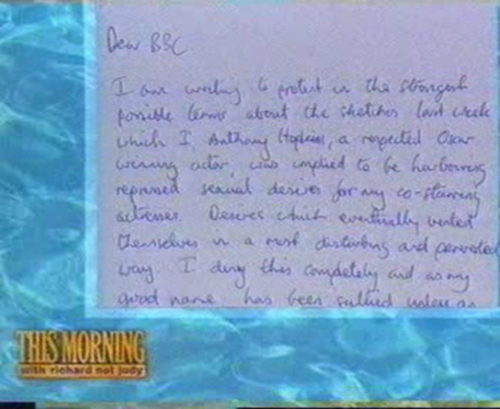 Dear BBC
I am writing to protest in the strongest
possible terms about the sketches last week
which I, Anthony Hopkins, a respected Oscar
winning actor, was implied to be harbouring
repressed sexual desires for my co-starring
actresses. Desires which eventually vented
themselves in a most disturbing and perverted
way. I deny this completely and as my
good name has been sullied unless an
THIS MORNING
with richard not judy